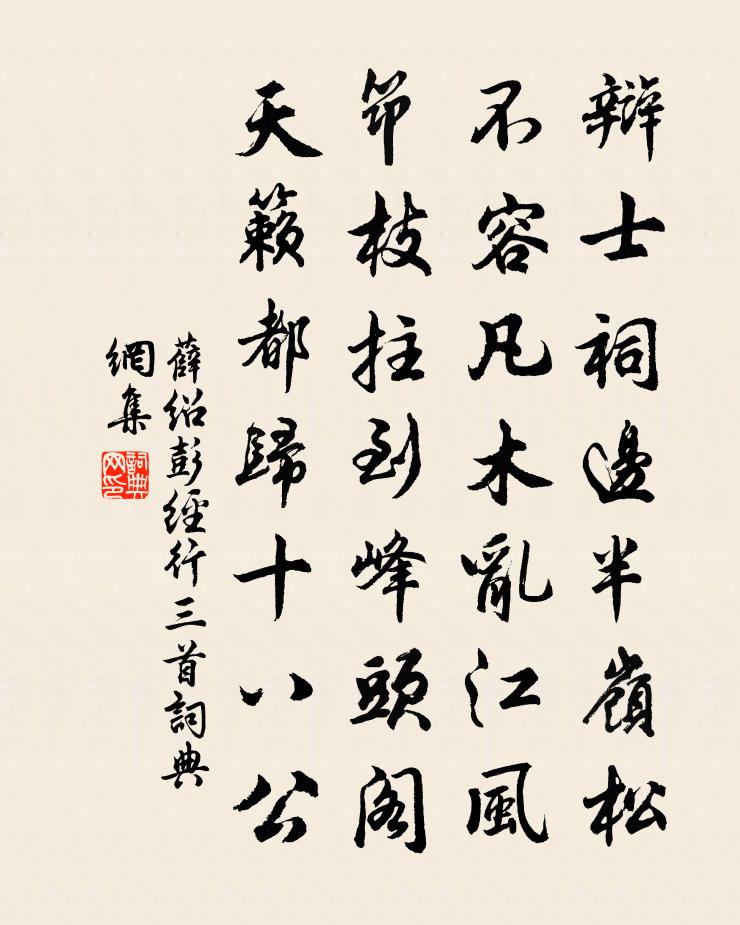 辯士祠邊半嶺松
不容凡木亂江風
笻枝拄到峰頭閣
天籟都歸十八公
薛紹彭經行三首詞典
網集
詞典網印